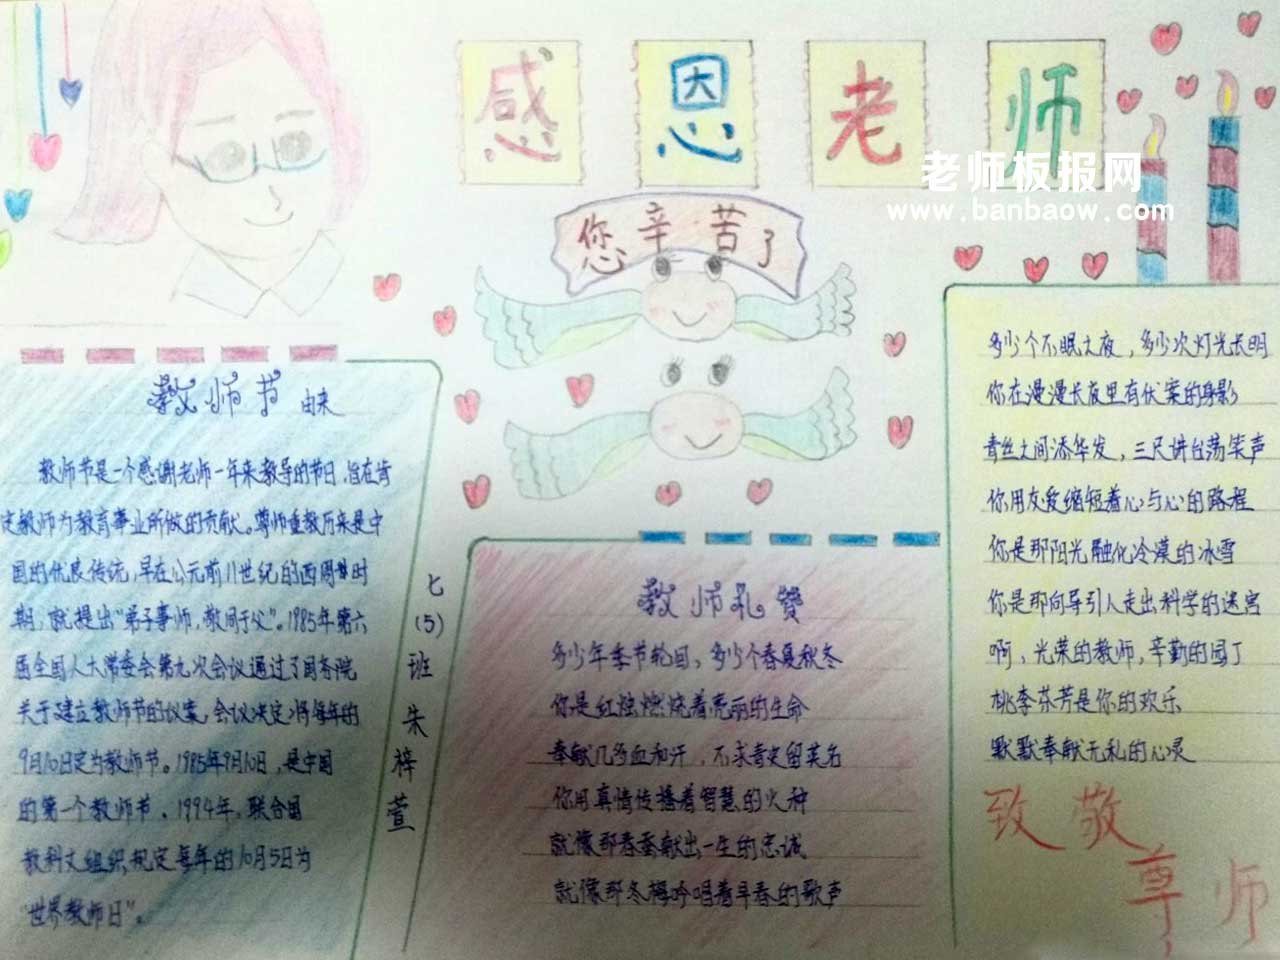 感恩老师
老师板报网
www.banbaow.com
您辛苦了
教师节 由来
教师节是一个感谢老师一年来教导的节日,旨在肯
定教师为教育事业所做的贡献。尊师重教历来是中
国的优良传统,早在公元前11世纪的西周时
期,就提出“弟子事师,敬同于父”。1985年第六
届全国人大常委会第九次会议通过了国务院
关于建立教师节的议案,会议决定将每年的
9月10日定为教师节。1985年9月10日,是中国
的第一个教师节。1994年,联合国
教科文组织,规定每年的10月5日为
“世界教师日”。
七(5)班朱梓萱
教师礼赞
多少年季节轮回,多少个春夏秋冬
你是红烛燃烧着亮丽的生命
奉献几多血和汗,不求青史留英名
你用真情传播着智慧的火种
就像那春蚕献出一生的忠诚
就像那冬梅吟唱着早春的歌声
多少个不眠之夜,多少次灯光长明
你在漫漫长夜里有伏案的身影
青丝之间添华发,三尺讲台荡笑声
你用友爱缩短着心与心的路程
你是那阳光融化冷漠的冰雪
你是那向导引人走出科学的迷宫
啊,光荣的教师,辛勤的园丁
桃李芬芳是你的欢乐
默默奉献无私的心灵
致敬
尊师